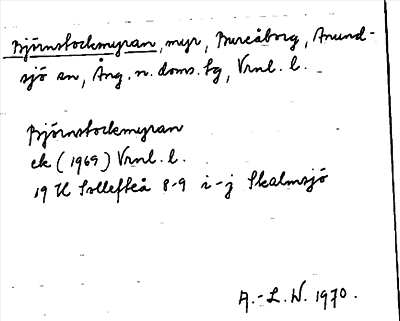 Björnstockmyran, myr, Bureåborg, Anund-
sjö sn, Ång. n. doms. tg, Vrnl. l.
Björnstockmyran
ek (1969) Vrnl. l.
19 H Sollefteå 8-9 i-j Skalmsjö
A.-L. W. 1970.